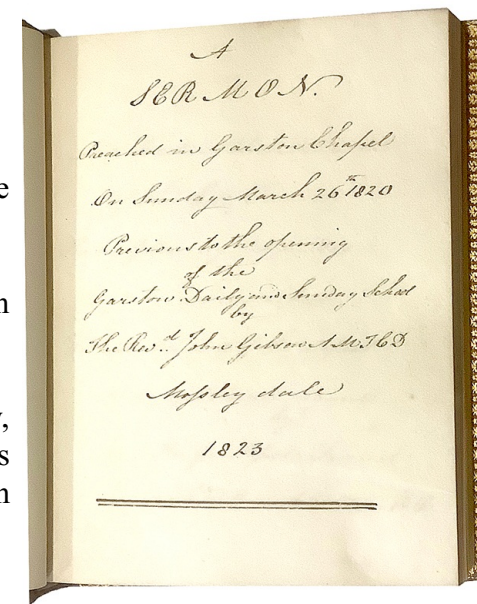 A
SERMON.
Preached in Garston Chapel
On Sunday March 26th 1820
Previous to the opening
of the
Garston Daily and Sunday School
by
The Revd. John Gibson A M T C D
Mossley dale
1823
e
n
,
s
n